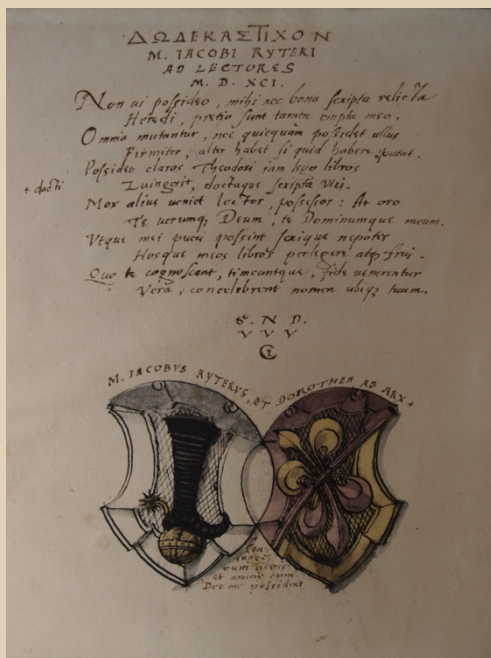 ΔΩΔΕΚΑΣΤΙΧΟΝ
M. IACOBI RYTERI
AD LECTORES
M. D. XCI.
Non ui possideo, mihi nec bona scripta relicta
Heredi, pretio sunt tamen empta meo.
Omnia mutantur, nec quicquam possidet ullus
Firmiter, alter habet si quid habere putat.
Possideo claros Theodori iam ego libros
+ docti Zuingerii, doctaque scripta Viri.
Mox alius ueniet lector, possessor: At oro
Te uerumq, Deum, te Dominumque meum.
Vtque mei pueri possint serique nepotes
Hosque meos libros perlegere atq, frui.
Quo te cognoscant, timeantque, fide uenerentur
Vera, concelebrent nomen ubiq, tuum.
S. N. D.
V V V
M. IACOBVS RYTERVS, ET DOROTHEA AB ARX +
Con
iuges
cum libris
et amicis cum
Deo me possident